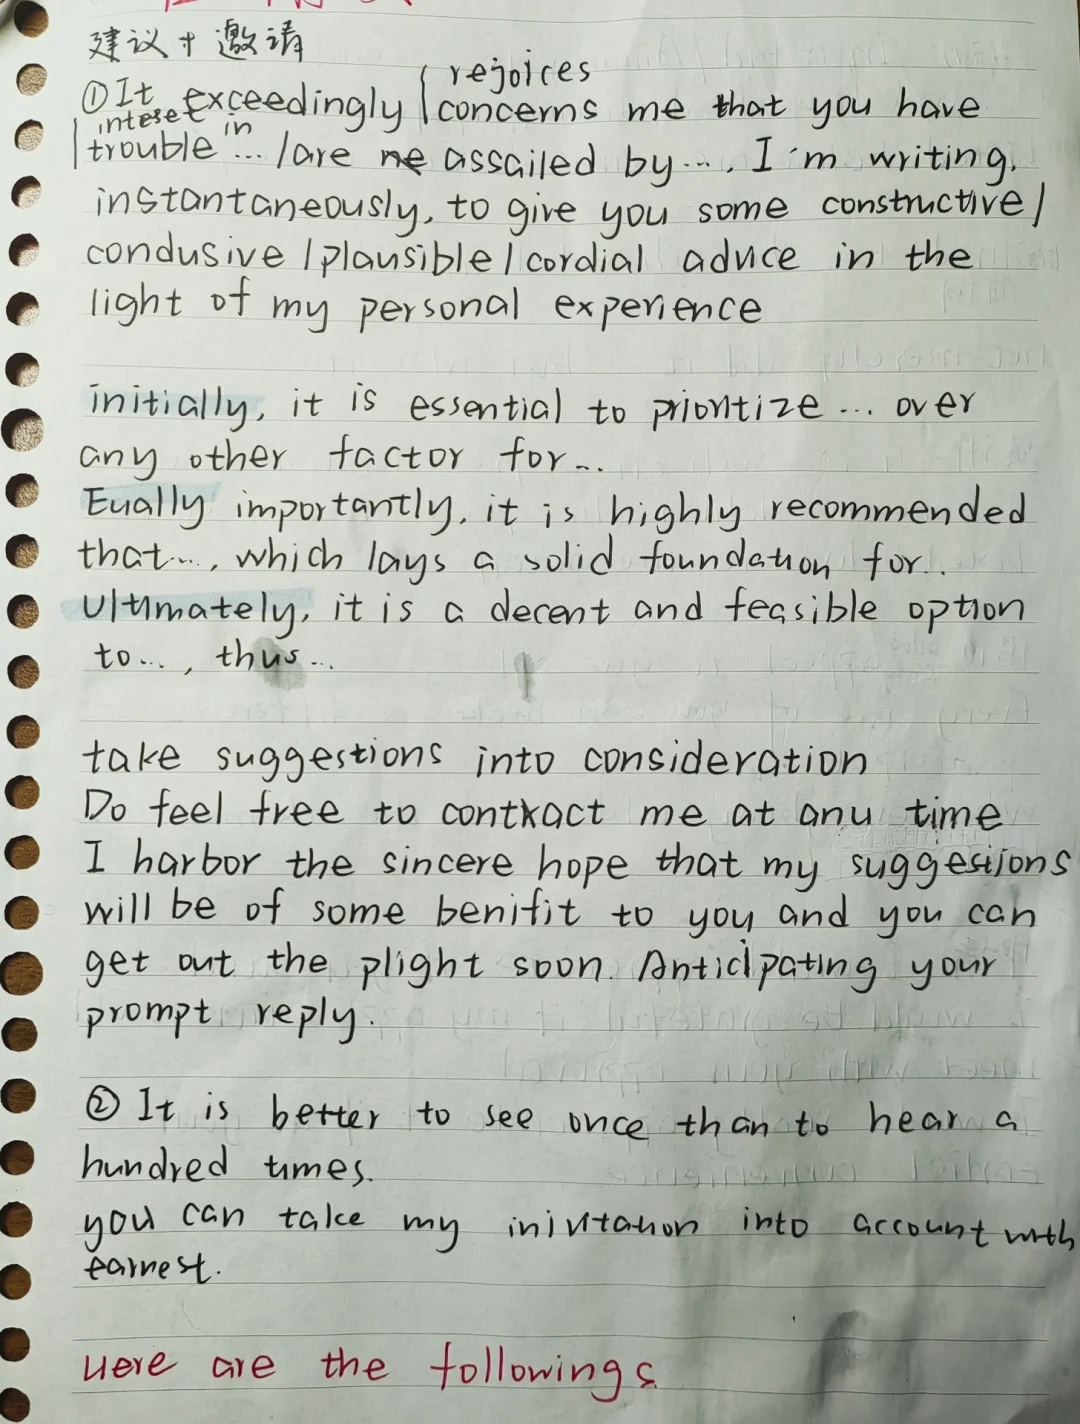 建议+邀请
rejoices
①It exceedingly concerns me that you have
inteset in
trouble ... /are assailed by ... . I'm writing,
instantaneously, to give you some constructive/
condusive/plausible/cordial advice in the
light of my personal experience
initially, it is essential to prioritize ... over
any other factor for ...
Eually importantly, it is highly recommended
that ..., which lays a solid foundation for..
Ultimately, it is a decent and feasible option
to ..., thus ...
take suggestions into consideration
Do feel free to contact me at any time
I harbor the sincere hope that my suggestions
will be of some benifit to you and you can
get out the plight soon. Anticipating your
prompt reply.
② It is better to see once than to hear a
hundred times.
you can take my inivitation into account with
earnest.
Here are the followings